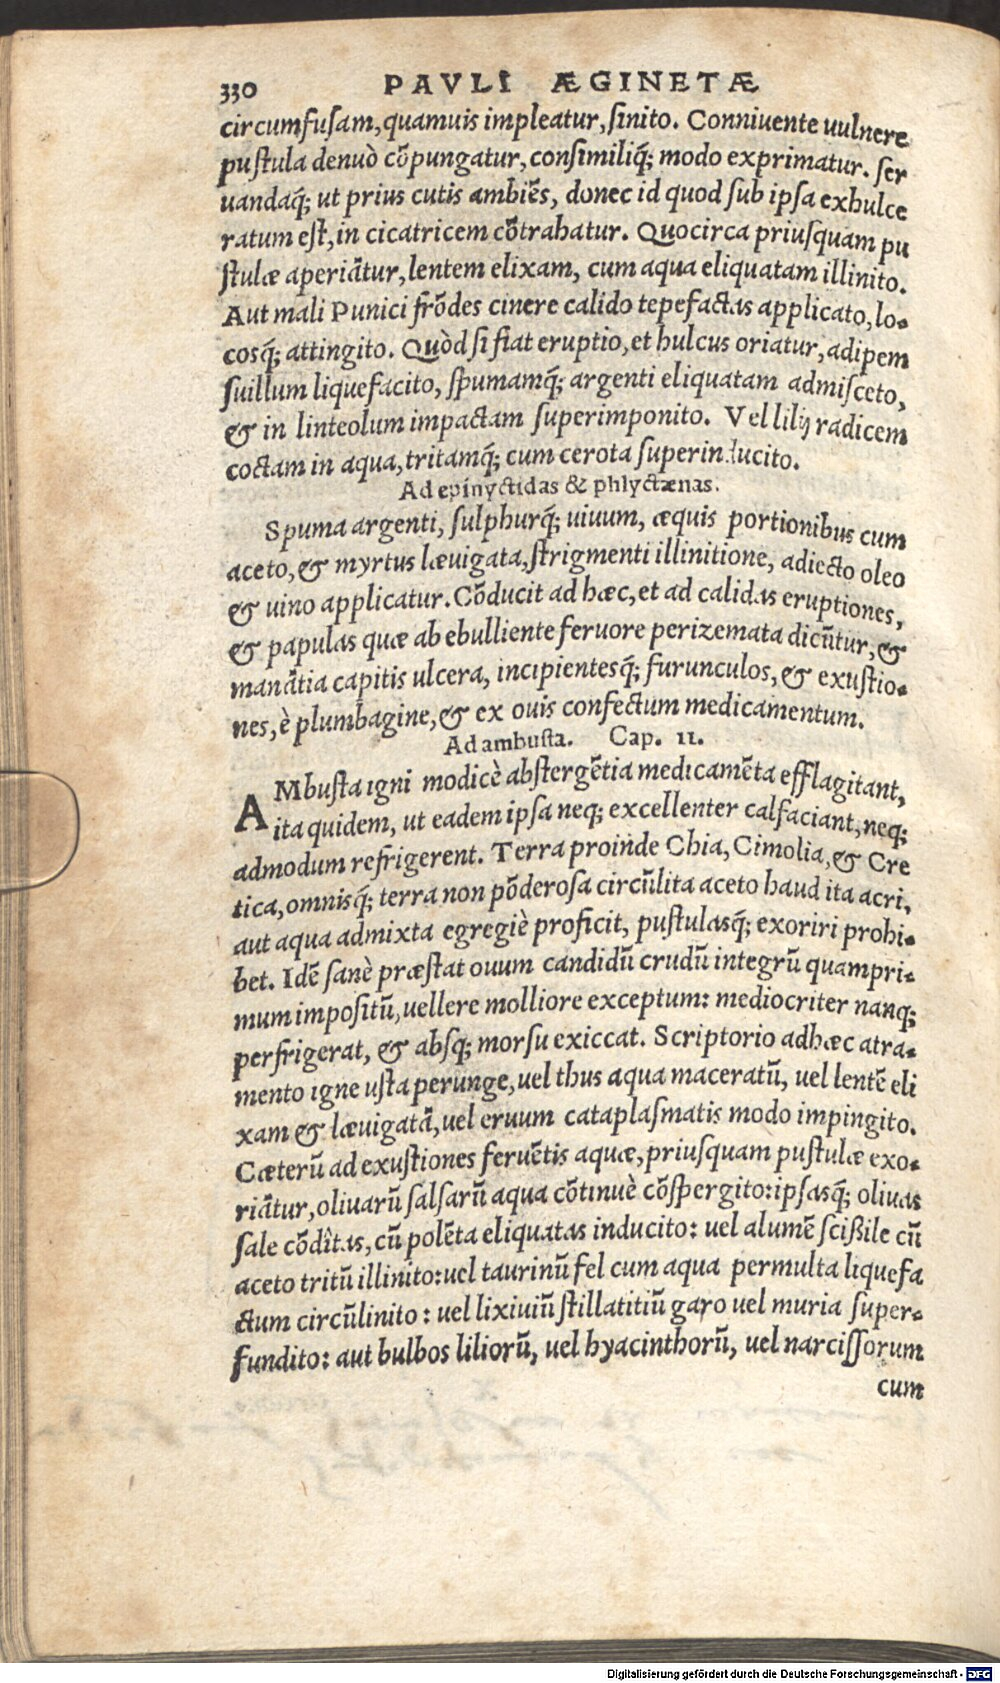 330 PAVLI ÆGINETÆ
circumfuſam, quamuis impleatur, ſinito. Conniuente uulnere
puſtula denuò cõpungatur, conſimiliq́; modo exprimatur. ſer
uandaq́; ut prius cutis ambiẽs, donec id quod ſub ipſa exhulce
ratum eſt, in cicatricem cõtrahatur. Quocirca priuſquam pu
ſtulæ aperiãtur, lentem elixam, cum aqua eliquatam illinito.
Aut mali Punici frõdes cinere calido tepefactas applicato, lo-
cosq́; attingito. Quòd ſi fiat eruptio, et hulcus oriatur, adipem
ſuillum liquefacito, ſpumamq́; argenti eliquatam admiſceto,
& in linteolum impactam ſuperimponito. Vel lilij radicem
coctam in aqua, tritamq́; cum cerota ſuperinducito.
Ad epinyctidas & phlyctænas.
Spuma argenti, ſulphurq́; uiuum, æquis portionibus cum
aceto, & myrtus læuigata, ſtrigmenti illinitione, adiecto oleo
& uino applicatur. Cõducit ad hæc, et ad calidas eruptiones,
& papulas quæ ab ebulliente feruore perizemata dicũtur, &
manãtia capitis ulcera, incipientesq́; furunculos, & exuſtio-
nes, è plumbagine, & ex ouis confectum medicamentum.
Ad ambuſta. Cap. 11.
AMbuſta igni modicè abſtergẽtia medicamẽta efflagitant,
ita quidem, ut eadem ipſa neq; excellenter calfaciant, neq;
admodum refrigerent. Terra proinde Chia, Cimolia, & Cre
tica, omnisq́; terra non põderoſa circũlita aceto haud ita acri,
aut aqua admixta egregiè proficit, puſtulasq́; exoriri prohi-
bet. Idẽ ſanè præſtat ouum candidũ crudũ integrũ quampri-
mum impoſitũ, uellere molliore exceptum: mediocriter nanq;
perfrigerat, & abſq; morſu exiccat. Scriptorio adhæc atra-
mento igne uſta perunge, uel thus aqua maceratũ, uel lentẽ eli
xam & læuigatã, uel eruum cataplaſmatis modo impingito.
Cæterũ ad exuſtiones feruẽtis aquæ, priuſquam puſtulæ exo-
riãtur, oliuarũ ſalſarũ aqua cõtinuè cõſpergito: ipſasq́; oliuas
ſale cõdîtas, cũ polẽta eliquatas inducito: uel alumẽ ſciſsile cũ
aceto tritũ illinito: uel taurinũ fel cum aqua permulta liquefa
ctum circũlinito: uel lixiuiũ ſtillatitiũ garo uel muria ſuper-
fundito: aut bulbos liliorũ, uel hyacinthorũ, uel narciſſorum
cum
Digitalisierung gefördert durch die Deutsche Forschungsgemeinschaft - DFG